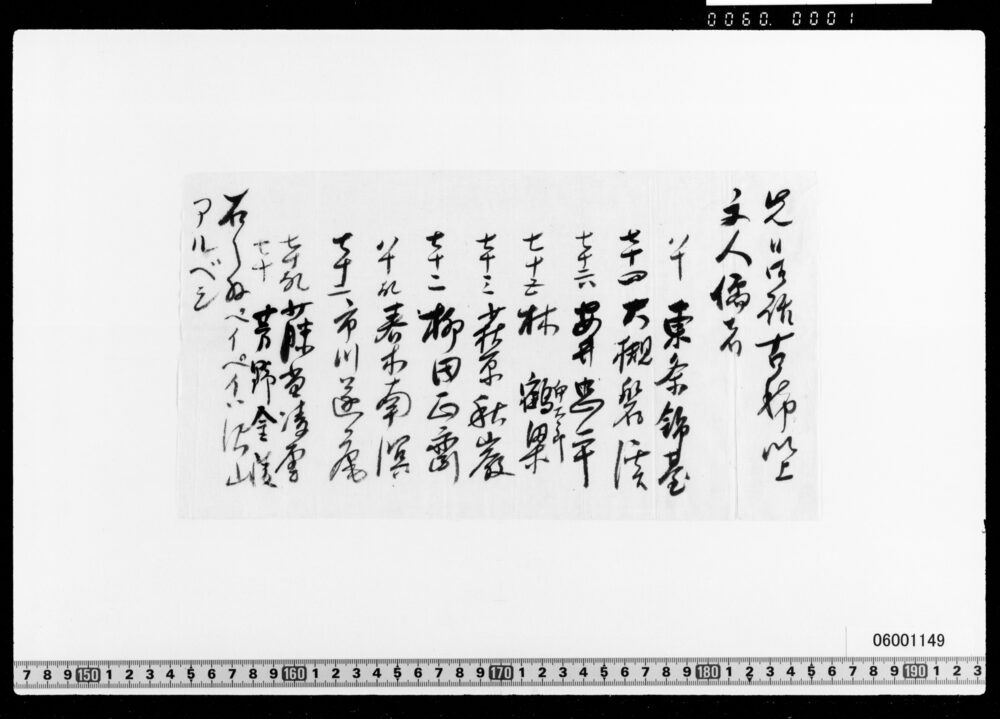 0060. 0001
先日御話古稀以上
文人儒者
八十 東条錦台
七十四 大槻磐渓
七十六 安井忠平
七十五 林 鶴梁
七十三 萩原秋巌
七十二 柳田正斎
八十九 春木南溟
七十一 市川遂庵
七十九 斎藤凌雲
七十 芳野金陵
ペイペイハ沢山
アルベシ
06001149
7 8 9 150 1 2 3 4 5 6 7 8 9 160 1 2 3 4 5 6 7 8 9 170 1 2 3 4 5 6 7 8 9 180 1 2 3 4 5 6 7 8 9 190 1 2 3